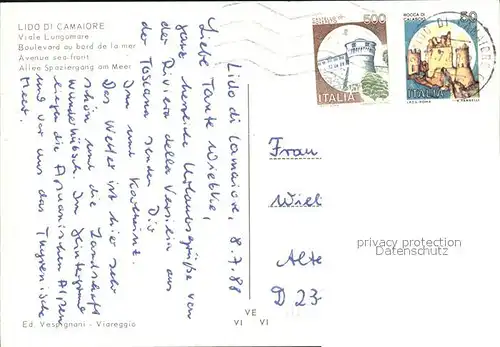 LIDO DI CAMAIORE
Viale Lungomare
Boulevard au bord de la mer
Avenue sea-front
Allee Spaziergang am Meer
500
ITALIA
ROCCA DI CALASCIO
50
ITALIA
I.P.Z.S. ROMA
Lido di Camaiore, 8.7.88
Liebe Tante Wiebke,
ganz herzliche Urlaubsgrüße von
der Riviera della Versilia aus
der Toskana senden Dir
Jan und Kathrin.
Das Wetter ist hier sehr
schön und die Landschaft
wunderhübsch. Im Hintergrund
liegen die Apuanischen Alpen
und vor uns das Tyrrhenische
Meer.
Frau
Wiel
Alte
D 23
privacy protection
Datenschutz
VE
VI VI
Ed. Vespignani - Viareggio